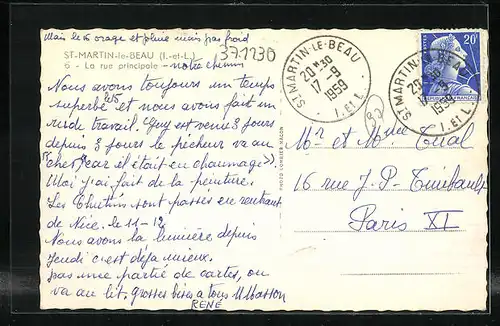 Mais le 16 orage et pluie mais pas froid
371230
ST-MARTIN-le-BEAU (I.-et-L.)
6 - La rue principale - notre chemin
Nous avons toujours un temps
superbe et nous avons fait un
rude travail. Guy est venu 3 jours
depuis 3 jours le pêcheur va au
"cher" (car il était en chaumage).
Moi j'ai fait de la peinture.
Les sont passés en rentrant
de Nice. le 11-12
Nous avons la lumière depuis
Jeudi c'est déjà mieux.
pas une partie de cartes, on
va au lit. grosses bises a tous M Masson
RENÉ
PHOTO COMBIER MACON
ST-MARTIN-LE-BEAU
20 H 30
17-9
1959
I. ET L.
20F
ST-MARTIN-LE-BEAU
1959
I. ET L.
Mr et Mme
16 rue J. P. Timbault
Paris XI